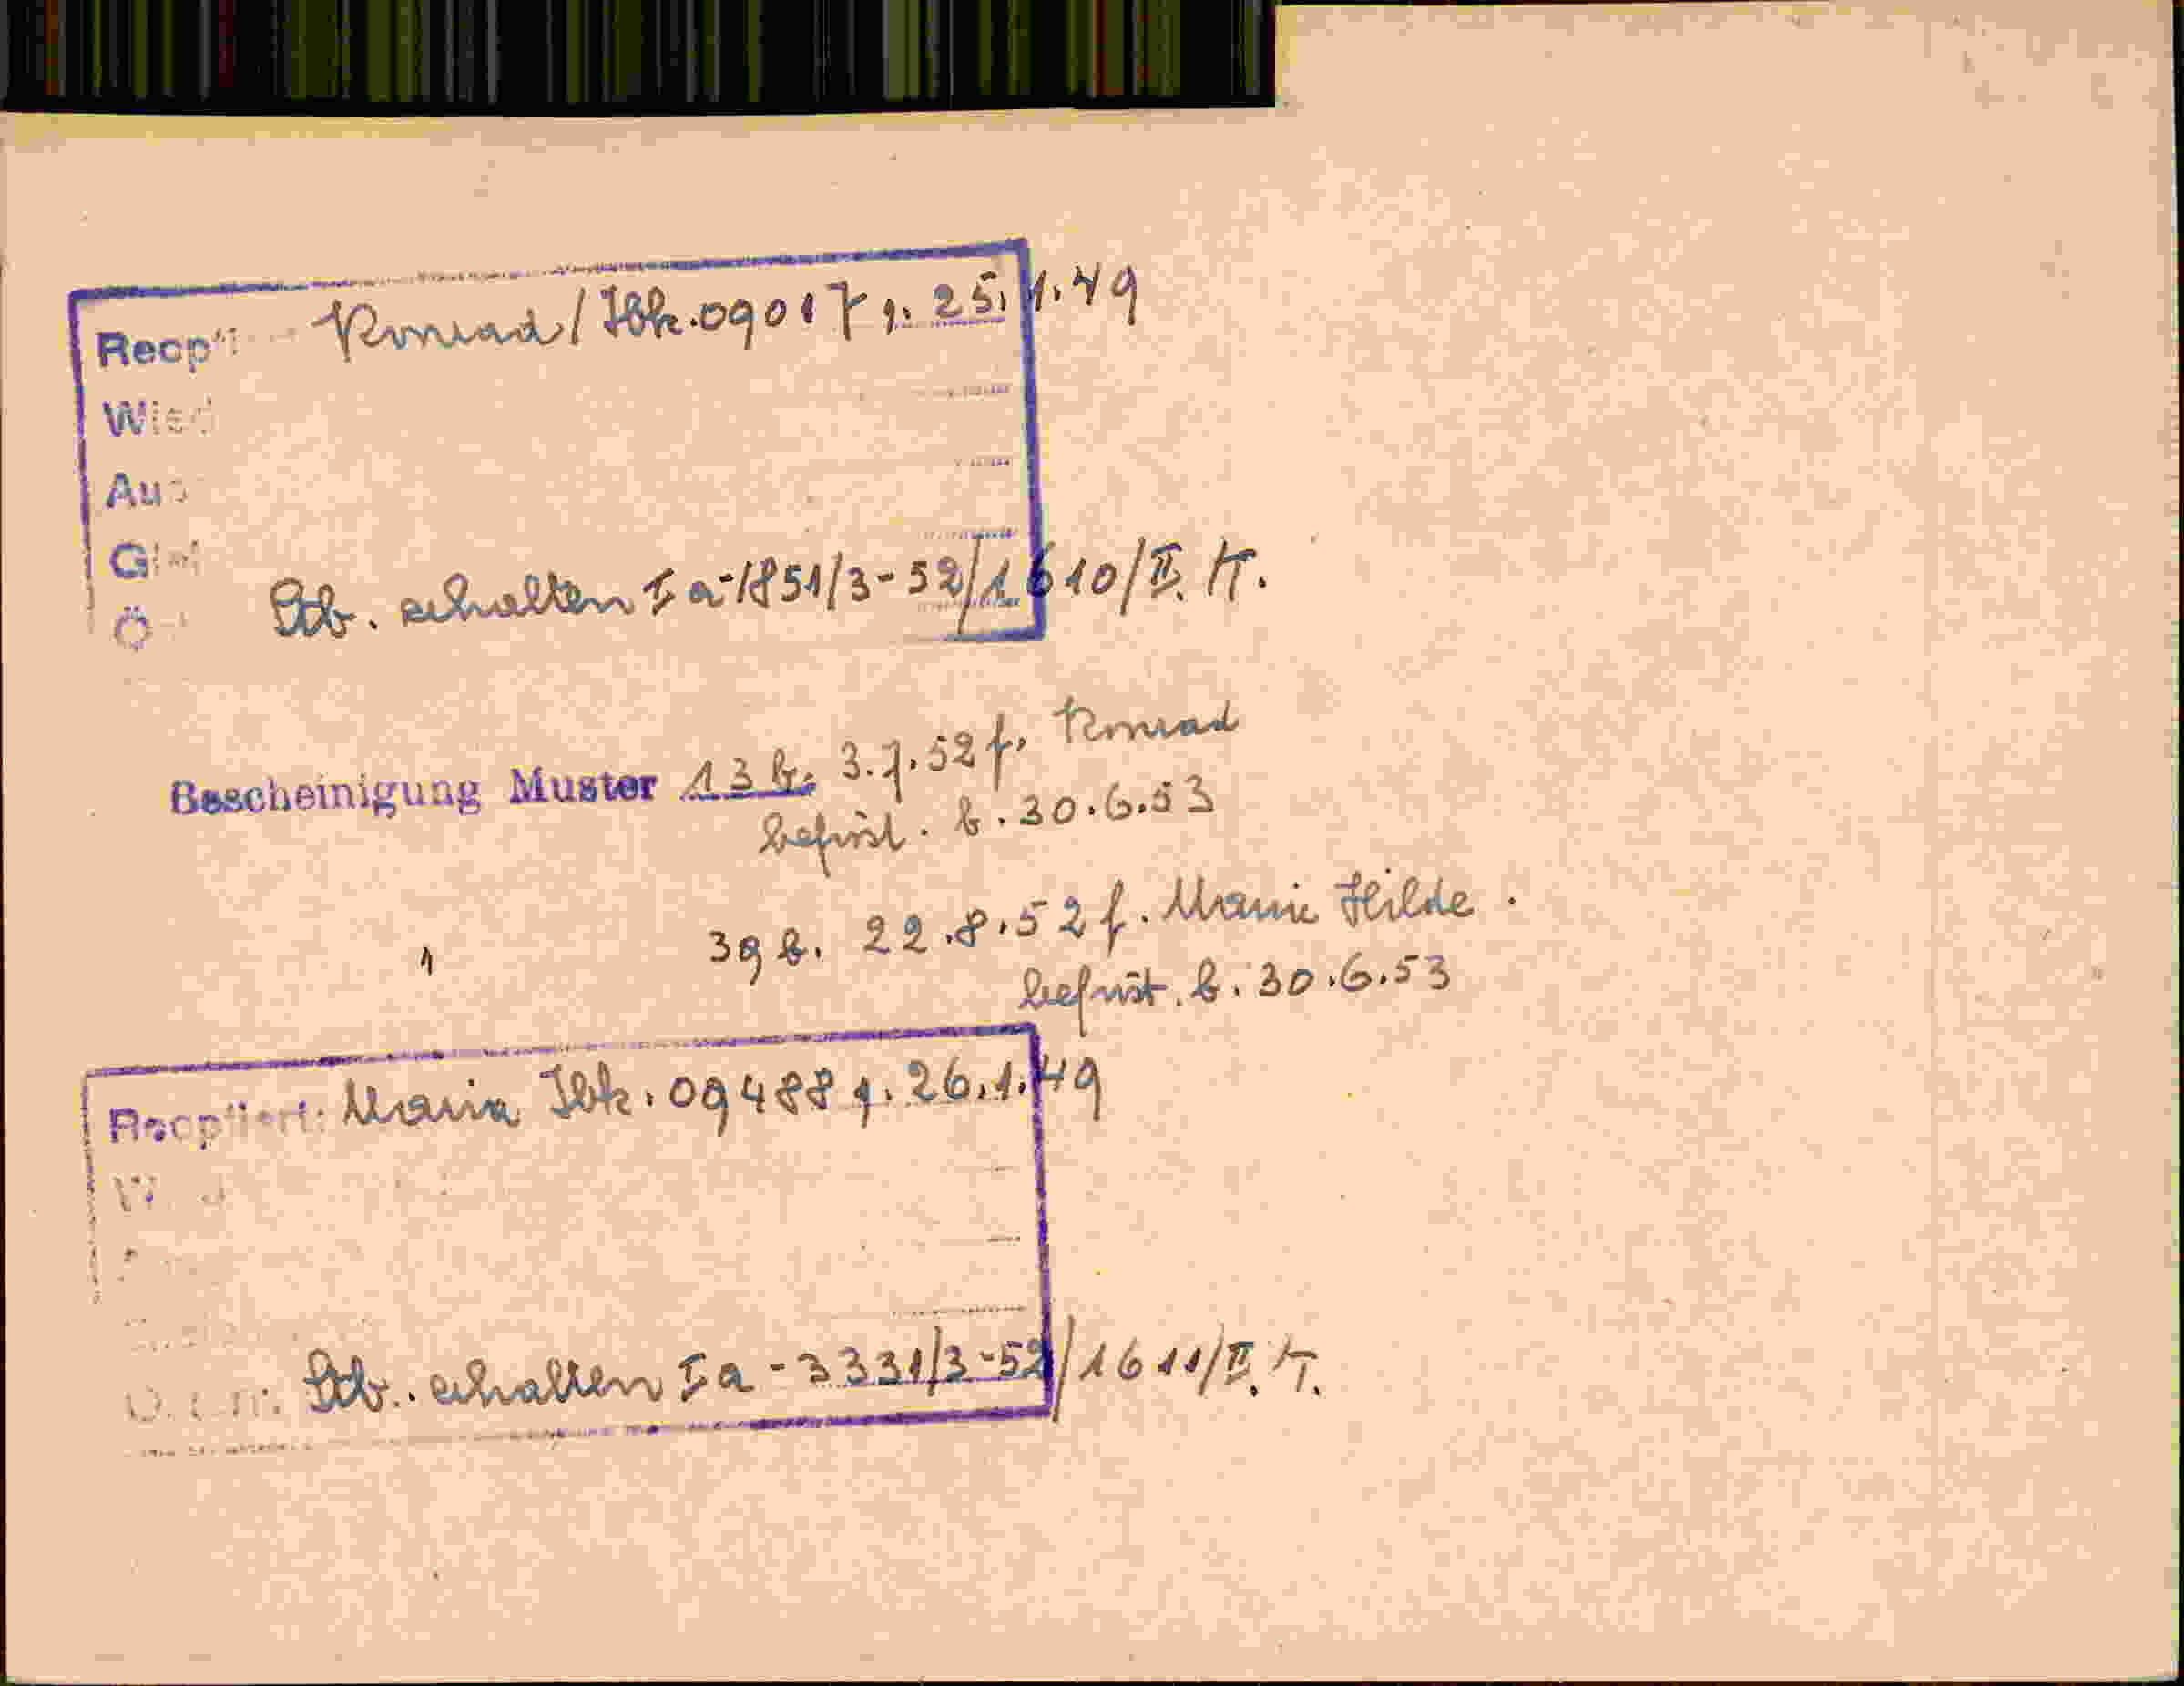 Konrad / Ibk. 09017 g. 25.1.49
Stb. erhalten Ia-1851/3-52/1610/II. T.
Bescheinigung Muster 13 b. 3.7.52 f. Konrad
befrist. b. 30.6.53
" 39 b. 22.8.52 f. Marie Hilde.
befrist. b. 30.6.53
Maria Ibk. 09488 g. 26.1.49
Stb. erhalten Ia-3331/3-52/1611/II. T.